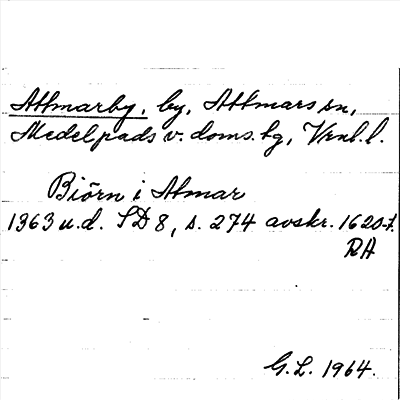 Attmarby, by, Attmars sn,
Medelpads v. doms. tg, Vrnl. l.
Biörn i Atmar
1363 u.d. SD 8, s. 274 avskr. 1620-t.
RA
G.L. 1964.